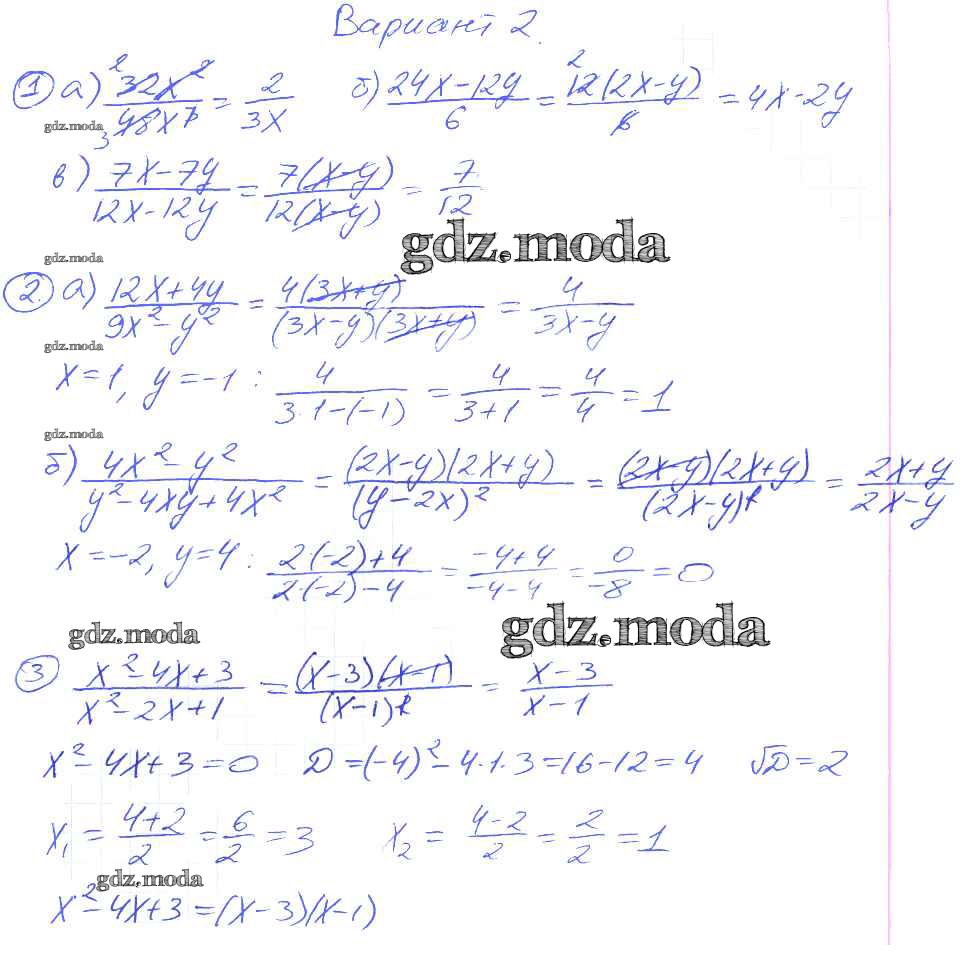 Вариант 2.
① а) 32x²/48x³ = 2/3x б) 24x-12y/6 = 12(2x-y)/6 = 4x-2y
gdz.moda
в) 7x-7y/12x-12y = 7(x-y)/12(x-y) = 7/12
gdz.moda
gdz.moda
② а) 12x+4y/9x²-y² = 4(3x+y)/(3x-y)(3x+y) = 4/3x-y
gdz.moda
x=1, y=-1 : 4/3·1-(-1) = 4/3+1 = 4/4 = 1
gdz.moda
б) 4x²-y²/y²-4xy+4x² = (2x-y)(2x+y)/(y-2x)² = (2x-y)(2x+y)/(2x-y)² = 2x+y/2x-y
x=-2, y=4 : 2·(-2)+4/2·(-2)-4 = -4+4/-4-4 = 0/-8 = 0
gdz.moda gdz.moda
③ x²-4x+3/x²-2x+1 = (x-3)(x-1)/(x-1)² = x-3/x-1
x²-4x+3=0 D=(-4)²-4·1·3=16-12=4 √D=2
x₁ = 4+2/2 = 6/2 = 3 x₂ = 4-2/2 = 2/2 = 1
gdz.moda
x²-4x+3=(x-3)(x-1)